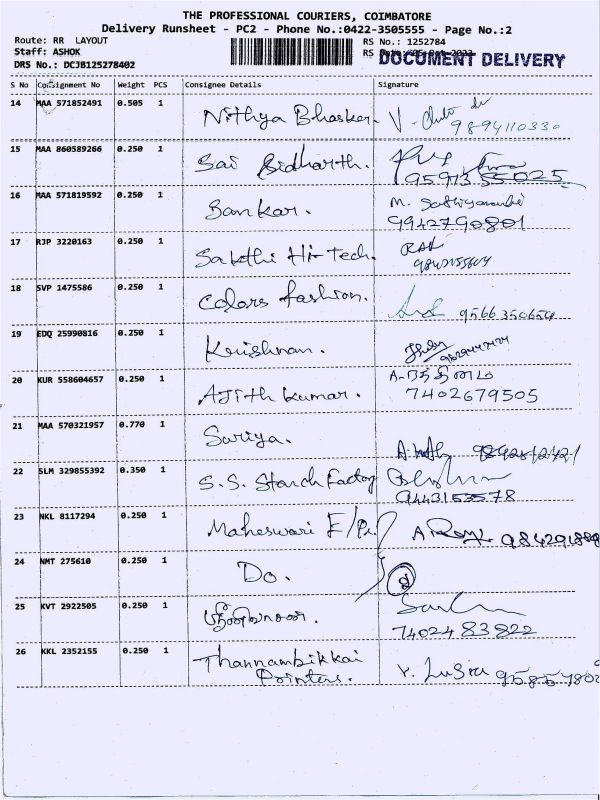 THE PROFESSIONAL COURIERS, COIMBATORE
Delivery Runsheet - PC2 - Phone No.:0422-3505555 - Page No.:2
Route: RR LAYOUT
RS No.: 1252784
Staff: ASHOK
RS
DOCUMENT DELIVERY
DRS No.: DCJB125278402
S No Consignment No Weight PCS Consignee Details Signature
14 MAA 571852491 0.505 1 Nithya Bhasker. V-
9894110330
15 MAA 860589266 0.250 1 Sai Sidharth.
9591355025
16 MAA 571819592 0.250 1 Sankar. M.
9942790801
17 RJP 3220163 0.250 1 Sakthi Hi-Tech.
18 SVP 1475586 0.250 1 Colors fashion. 9566350654
19 EDQ 25990816 0.250 1 Krishnan.
20 KUR 558604657 0.250 1 Ajith Kumar.
7402679505
21 MAA 570321957 0.770 1 Suriya.
22 SLM 329855392 0.350 1 S.S. Starch Factory
9443153578
23 NKL 8117294 0.250 1 Maheswari
24 NMT 275610 0.250 1 Do.
25 KVT 2922505 0.250 1
7402483822
26 KKL 2352155 0.250 1 Thannambikkai
Printers.